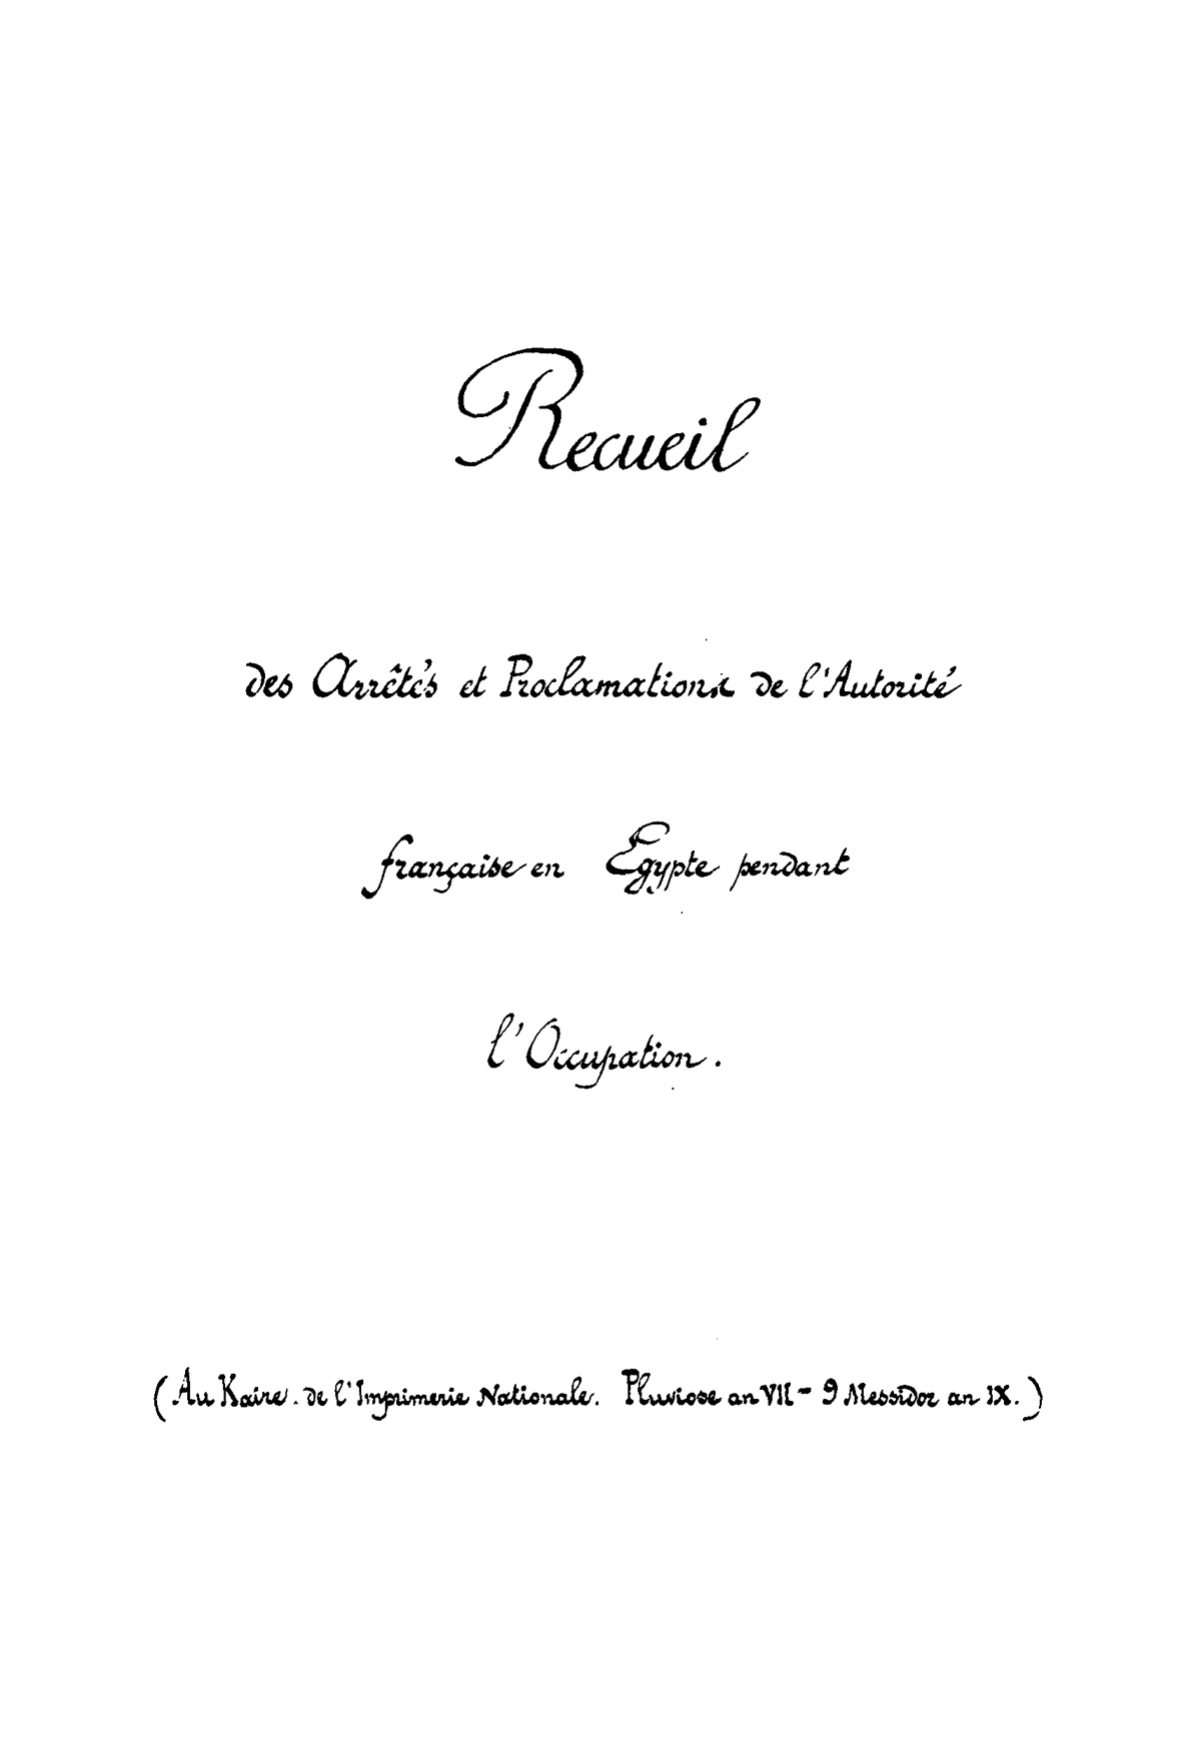 Recueil
des Arrêtés et Proclamations de l'Autorité
française en Egypte pendant
l'Occupation.
(Au Kaire. de l'Imprimerie Nationale. Pluviose an VII - 9 Messidor an IX.)